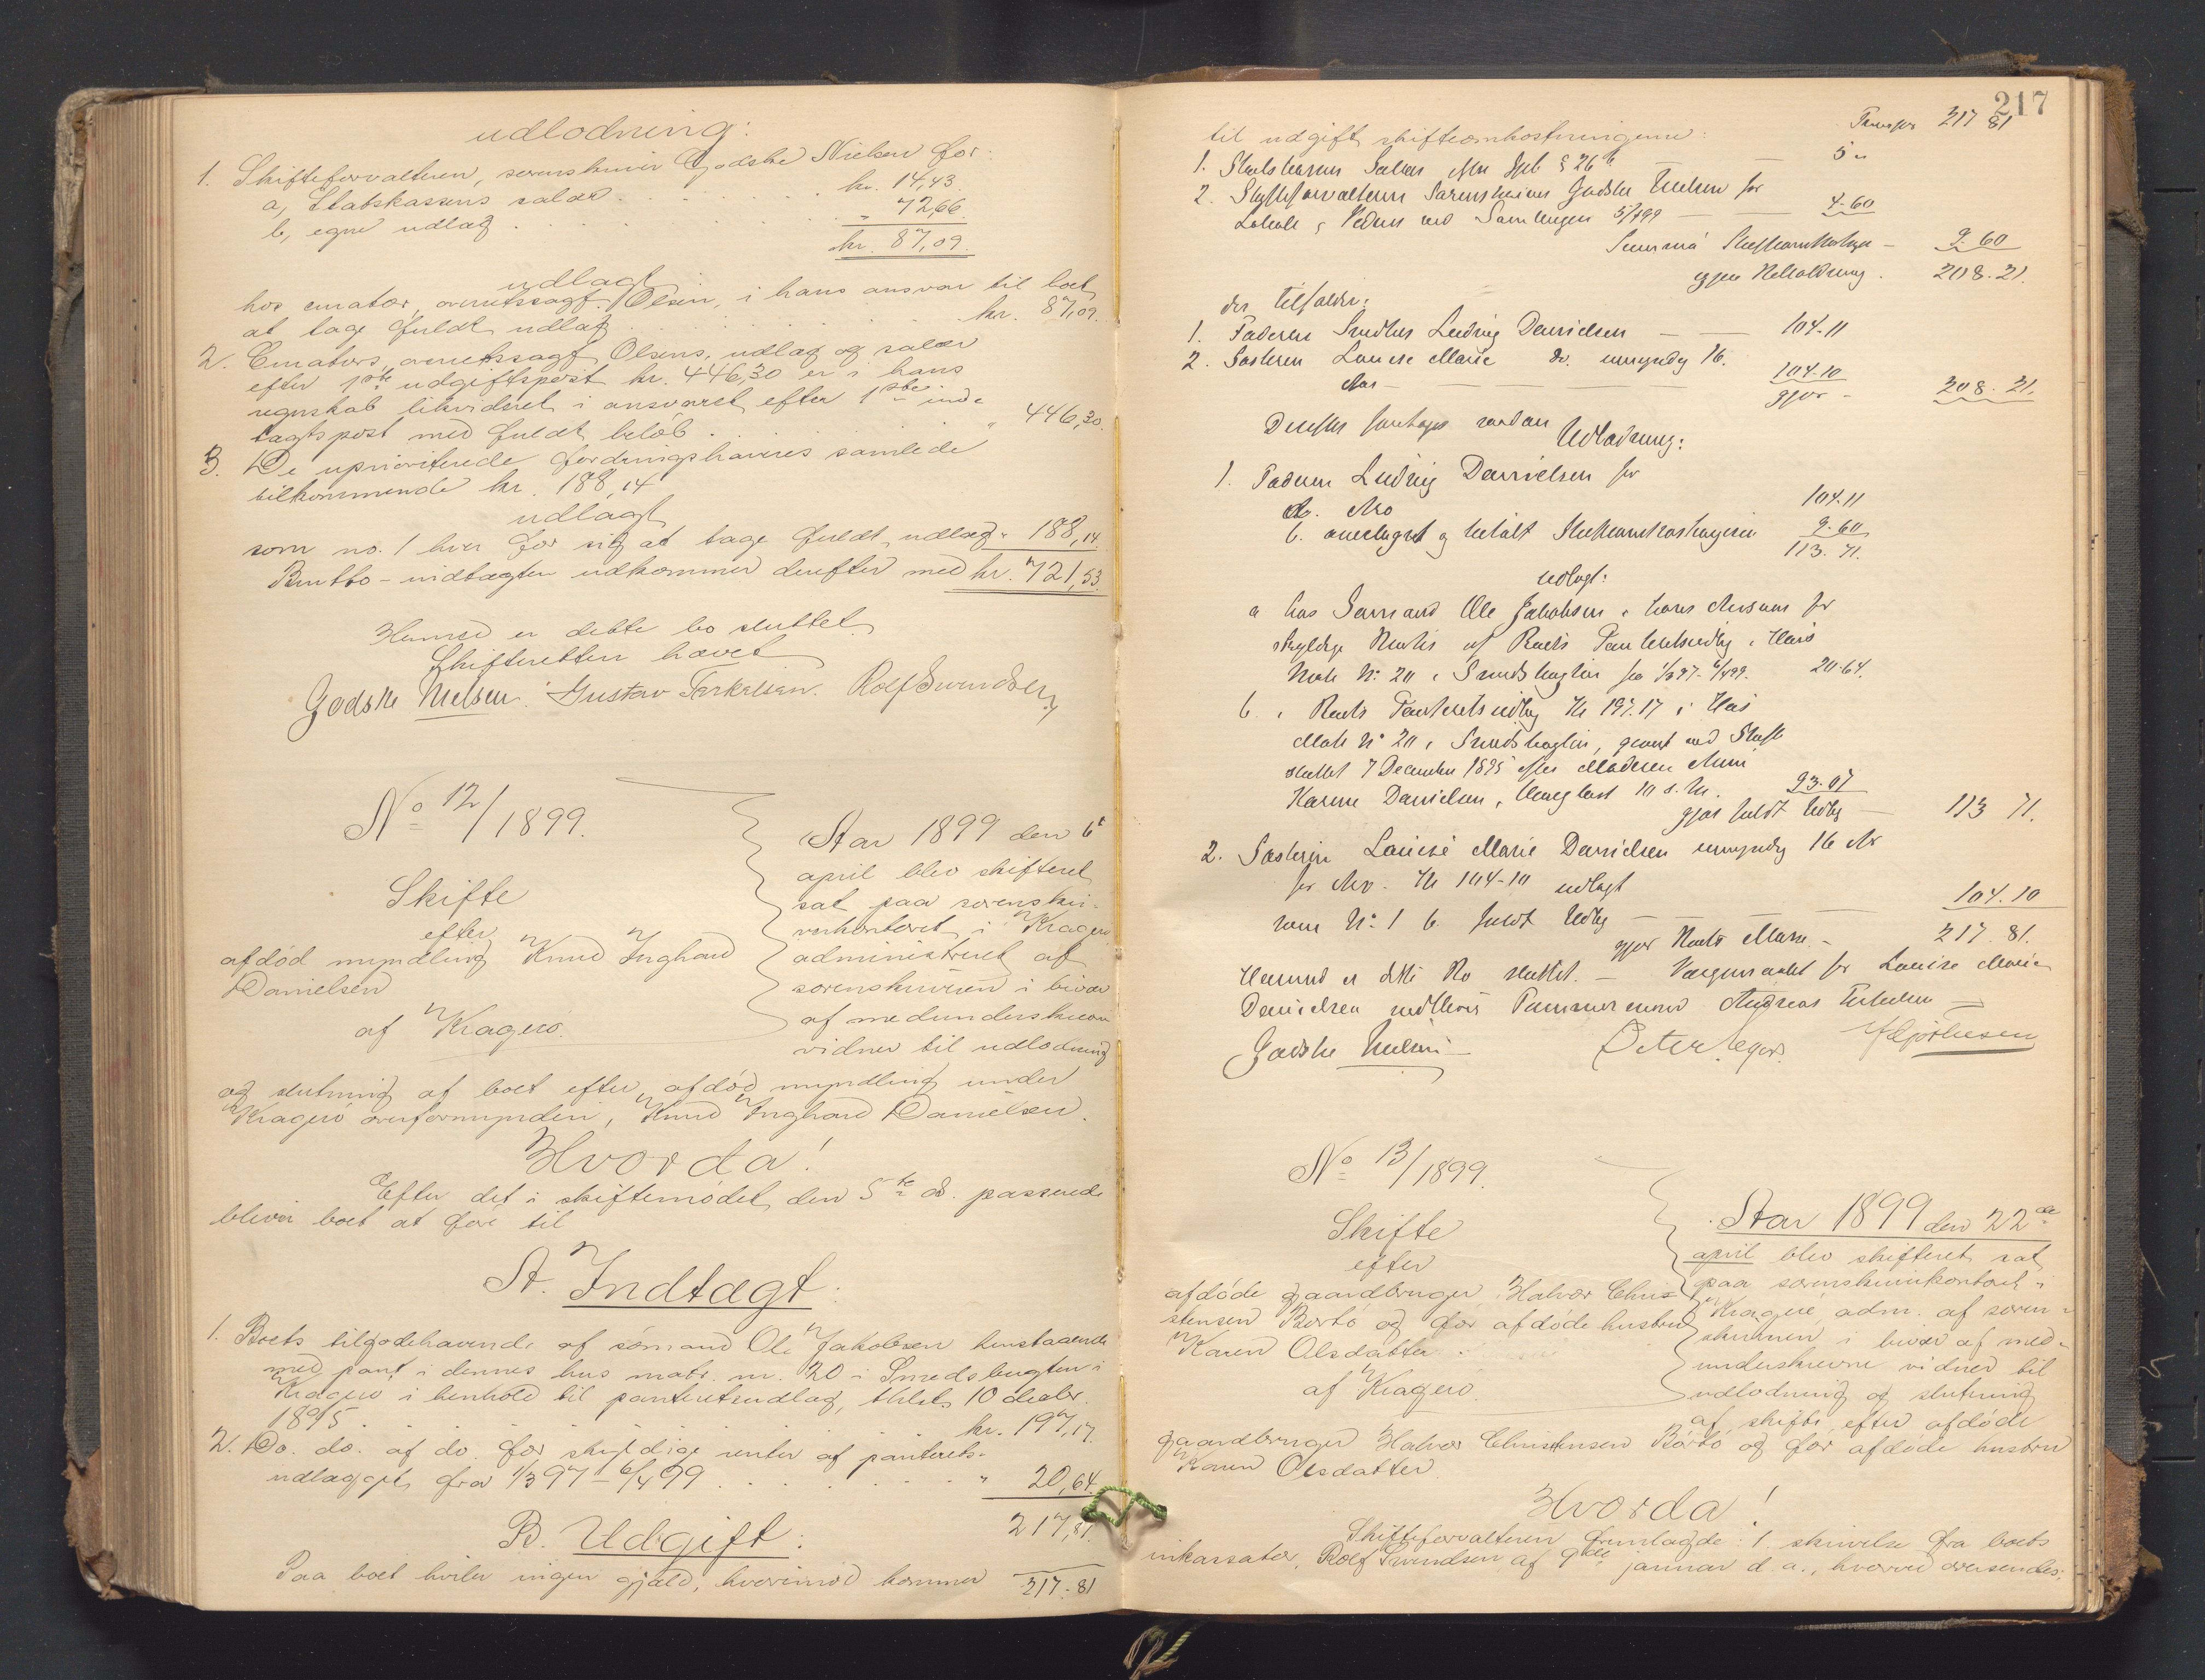 udlodning:
1. Skifteforvalteren, sorenskriver Godske Nielsen for:
a, Statskassens salær . . . . kr. 14,43.
b, egne udlæg . . . . . . " 72,66.
kr. 87,09.
udlagt:
hos curator, overretssagf. Olsen, i hans ansvar til boet
at tage fuldt udlæg . . . . . . . kr. 87,09.
2. Curators, overretssagf. Olsens, udlæg og salær
efter 1ste udgiftspost kr. 446,30 er i hans
regnskab likvideret i ansvaret efter 1ste ind-
tægtspost med fuldt beløb . . . . " 446,30.
3. De uprioriterede fordringshaveres samlede
tilkommende kr. 188,14
udlagt
som no. 1 hver for sig at tage fuldt udlæg " 188,14
Brutto-indtægten udkommer derefter med kr. 721,53.
Hermed er dette bo sluttet.
Skifteretten hævet
Godske Nielsen. Gustav Terkelsen. Rolf Svendsen
No 12/1899.
Skifte
efter
afdød myndling Knud Inghard
Danielsen
af Kragerø.
Aar 1899 den 6te
april blev skifteret
sat paa sorenskri-
verkontoret i Kragerø
administreret af
sorenskriveren i bivær
af medunderskrevne
vidner til udlodning
og slutning af boet efter afdød myndling under
Kragerø overformynderi, Knud Inghard Danielsen.
Hvorda!
Efter det i skiftemødet den 5te ds. passerede
bliver boet at føre til
A. Indtægt.
1. Boets tilgodehavende af sømand Ole Jakobsen henstaaende
med pant i dennes hus matr. nr. 20 i Smedsbugten i
Kragerø i henhold til panteretsudlæg, thlst. 10 decbr.
1895 . . . . . . . kr. 197,17
2. Do. do. af do. for skyldige renter af panterets-
udlægget fra 1/3 97 - 6/4 99 . . . . . " 20,64.
217,81
B. Udgift:
Paa boet hviler ingen gjæld, hvorimod kommer 217-81
217
Transpor 217 81
til udgift skifteomkostningerne:
1. Statskassens Salær efter Spl § 26 b — — 5 "
2. Skifteforvalteren Sorenskriver Godske Nielsen for
Lokale og Vidner ved Samlingen 5/4 99 — — 4-60
Summa Skifteomkostninger — 9.60
igjen Beholdning . 208.21.
der tilfalder:
1. Faderen Ludvig Danielsen — — 104-11
2. Søsteren Louise Marie do. umyndig 16.
Aar — — 104-10
gjør - 208.21.
Derefter foretages saadan
Udlodning:
1. Faderen Ludvig Danielsen for
a. Arv 104.11
b. overtaget og betalt Skifteomkostningerne 9.60
113.71.
udlagt:
a hos Sømand Ole Jakobsen i hans Ansvar for
skyldige Renter af Boets Panteretsudlæg i Huis
Matr No 20 i Smedsbugten fra 1/3 97 - 6/4 99. 20.64.
b. i Boets Panteretsudlæg Kr 197.17 i Huis
Matr No 20 i Smedsbugten, gjort ved Skifte
sluttet 7 December 1895 efter Moderen
Karine Danielsen, thinglæst 10 s. M. 93.07
gjør fuldt Udlæg — 113 71.
2. Søsteren Louise Marie Danielsen umyndig 16 Ar
for Arv. Kr 104-10 udlagt
som No 1 b fuldt Udlæg — — — 104.10
gjør Boets Masse - 217.81.
Hermed er dette Bo sluttet. — Værgemaalet for Louise Marie
Danielsen Tømmermand Andreas —
Godske Nielsen — Peter
No 13/1899.
Skifte
efter
afdøde gaardbruger Halvor Chri-
stensen Bortø og før afdøde hustru
Karen Olsdatter.
af Kragerø.
Aar 1899 den 22de
april blev skifteret sat
paa sorenskriverkontoret i
Kragerø, adm. af soren-
skriveren i bivær af med-
underskrevne vidner til
udlodning og slutning
af skifte efter afdøde
gaardbruger Halvor Christensen Bortø og før afdøde hustru
Karen Olsdatter.
Hvorda!
Skifteforvalteren fremlagde: 1. skrivelse fra boets
inkassator, Rolf Svendsen af 9de januar d. a., hvorved oversendes: